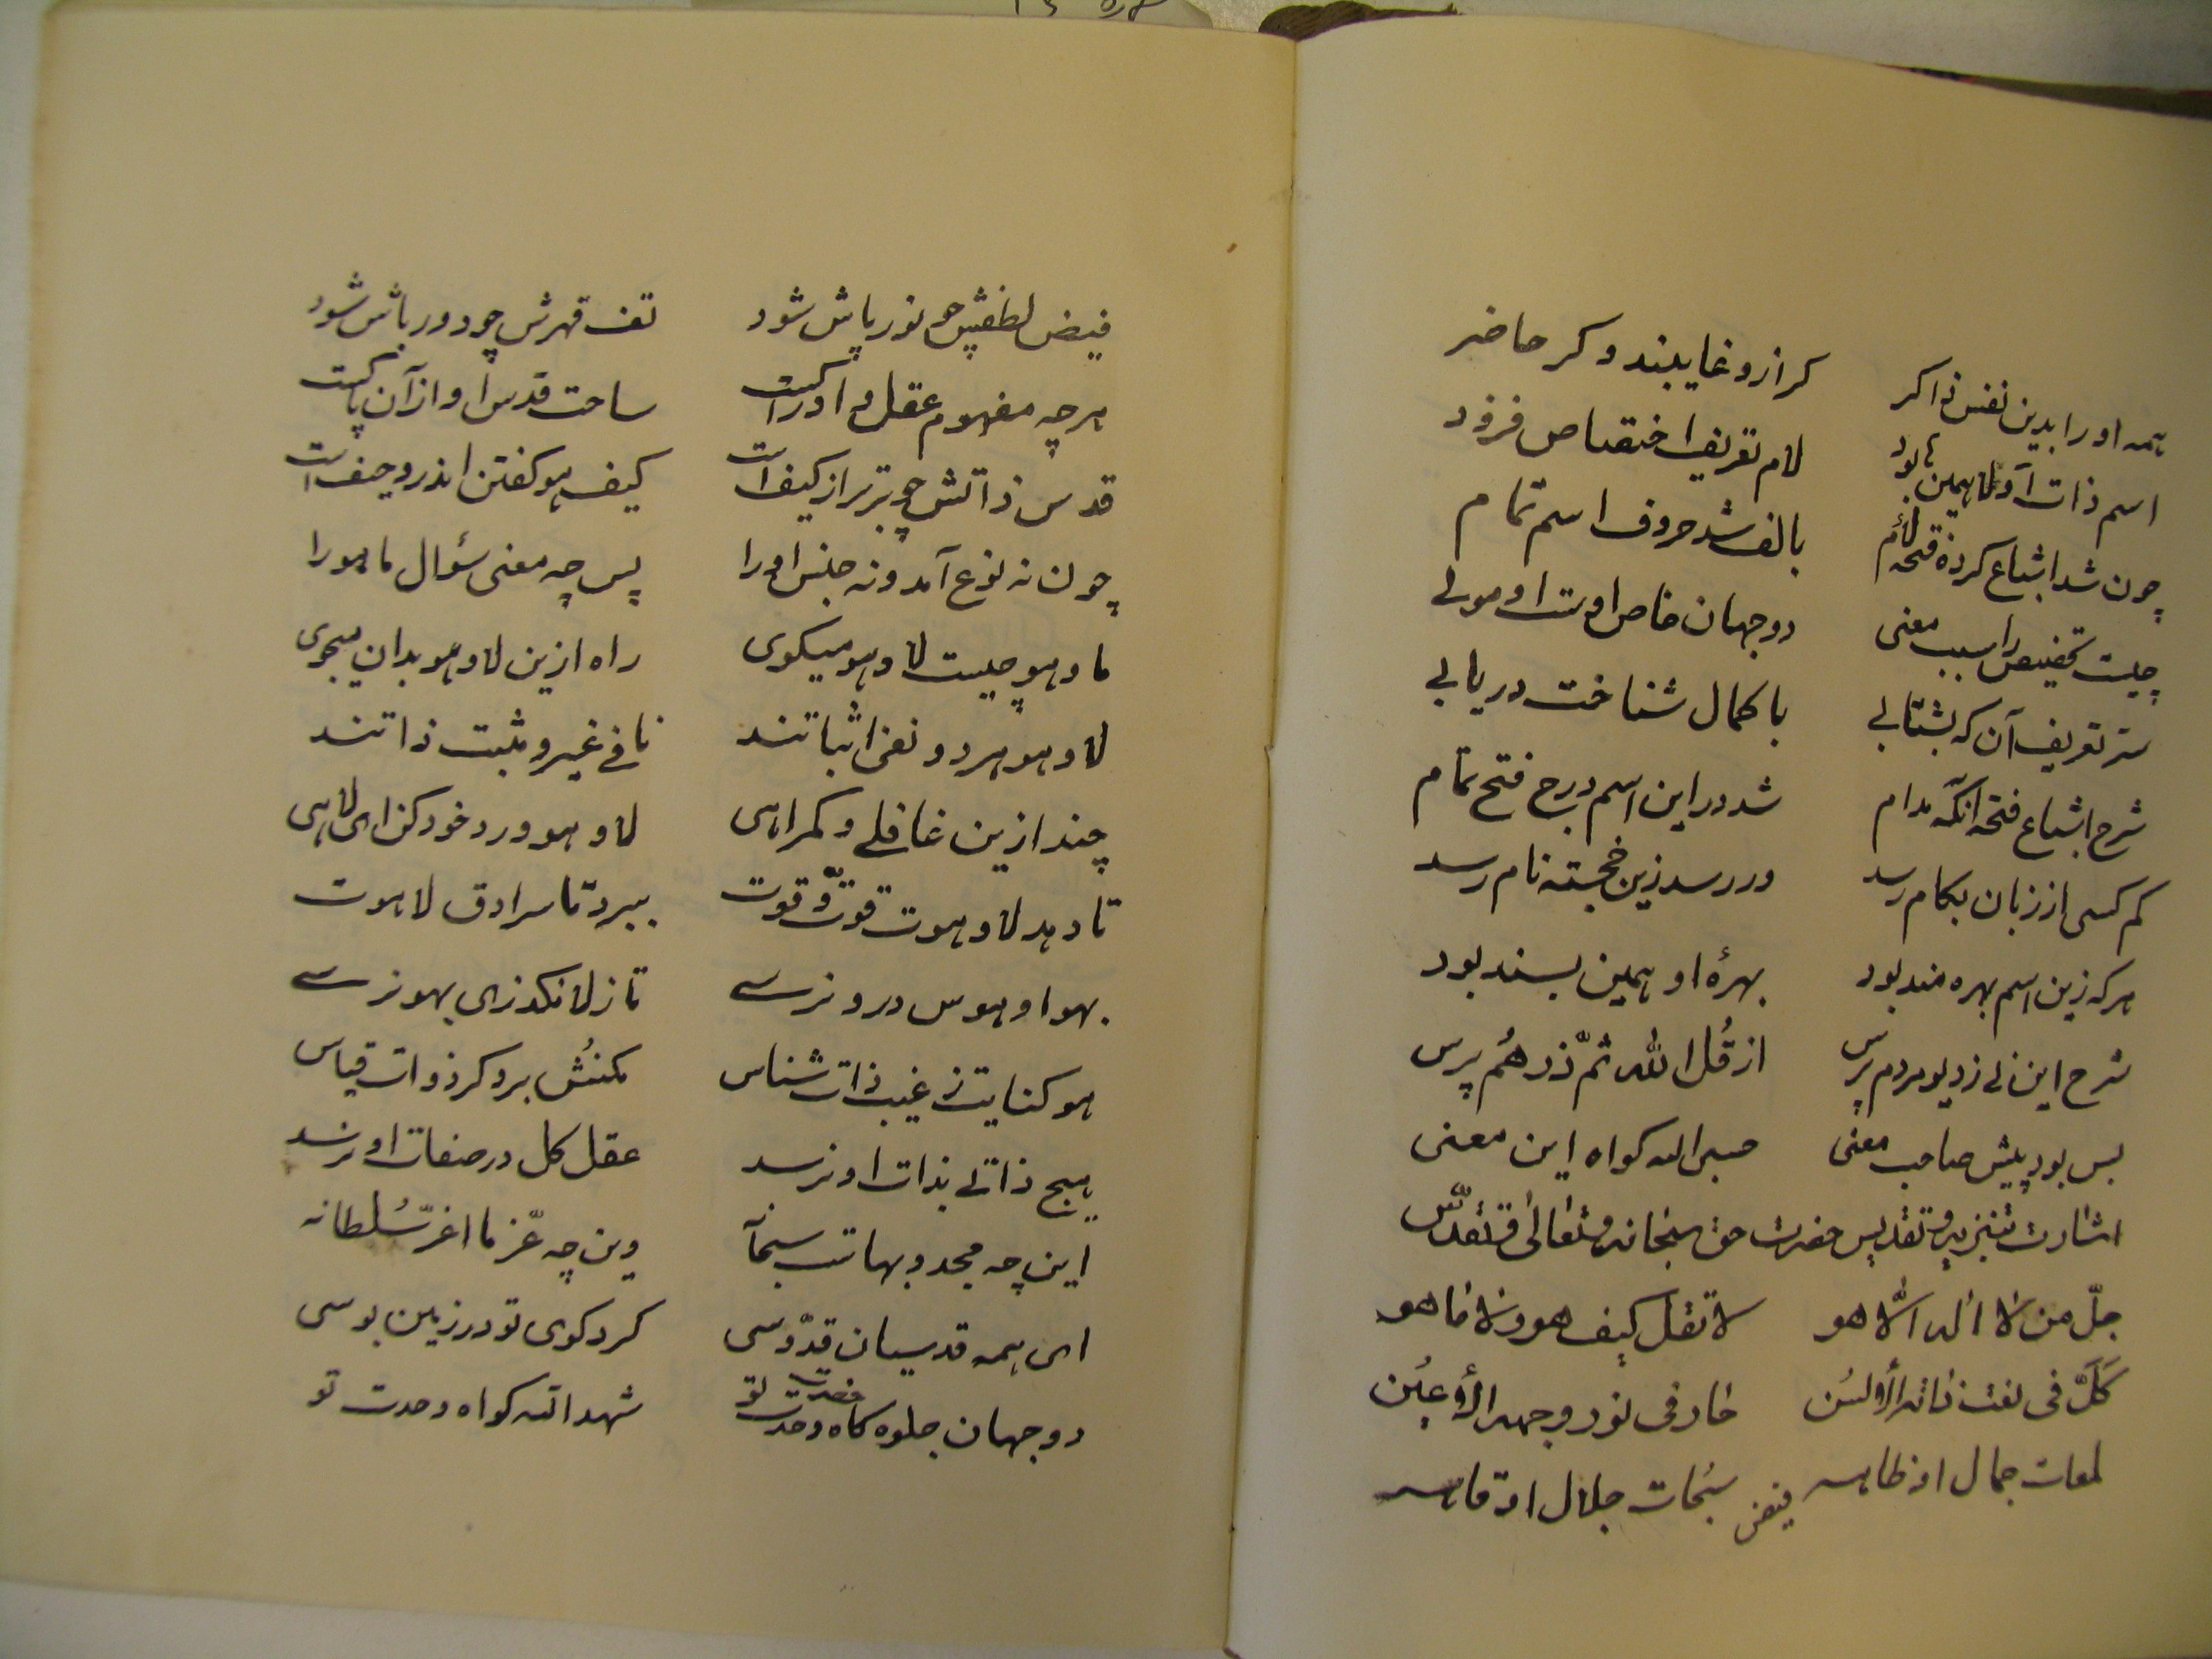 همه او را بدین نفس ذاکر کر ازو غایبند و کر حاضر
اسم ذات اولا همین ها بود لام تعریف اختصاص فزود
چون شد اشباع کرده فتحه لام با الف شد حروف اسم تمام
چیست تخصیص را سبب معنی دو جهان خاص اوست او مولی
سر تعریف آن که بشتابی با کمال شناخت دریابی
شرح اشباع فتحه آنکه مدام شد در این اسم درج فتح تمام
کم کسی از زبان بکام رسد ور رسد زین خجسته نام رسد
هر که زین اسم بهره مند بود بهرهٔ او همین بسند بود
شرح این نی ز دیو مردم پرس از قُل الله ثمّ ذرهُم پرس
بس بود پیش صاحب معنی حسبی الله کواه این معنی
اشارت بتنزیه و تقدیس حضرت حق سبحانه و تعالی و تقدّس
جلّ من لا اله الّا هو لا تقل کیف هو و لا ما هو
کَلَّ فی نعت ذاته الألسُن حار فی نور وجهه الأعیُن
لمعات جمال او ظاهر سبحات جلال او قاهر
فیض
فیض لطفش چو نور پاش شود تف قهرش چو دور باش شود
هر چه مفهوم عقل و ادراکست ساحت قدس او از آن پاکست
قدس ذاتش چو برتر از کیفست کیف هو کفتن اندرو حیفست
چون نه نوع آمد و نه جنس او را پس چه معنی سؤال ما هو را
ما و هو چیست لا و هو میکوی راه ازین لا و هو بدان میجوی
لا و هو هر دو نفی اثباتند نافی غیر و مثبت ذاتند
چند ازین غافلی و کمراهی لا و هو ورد خود کن ای لاهی
تا دهد لا و هوت قوّت و قوت ببرد تا سرادق لاهوت
بهوا و هوس درو نرسی تا ز لا نکذری بهو نرسی
هو کنایت ز غیب ذات شناس مکنش برد کر ذوات قیاس
هیچ ذاتی بذات او نرسد عقل کل در صفات او نرسد
این چه مجد و بهاست سبحانه وین چه عزّ ما اعزّ سُلطانه
ای همه قدسیان قدّوسی کرد کوی تو در زمین بوسی
دو جهان جلوه کاه وحدت تو شهد الله کواه وحدت تو
حضرت